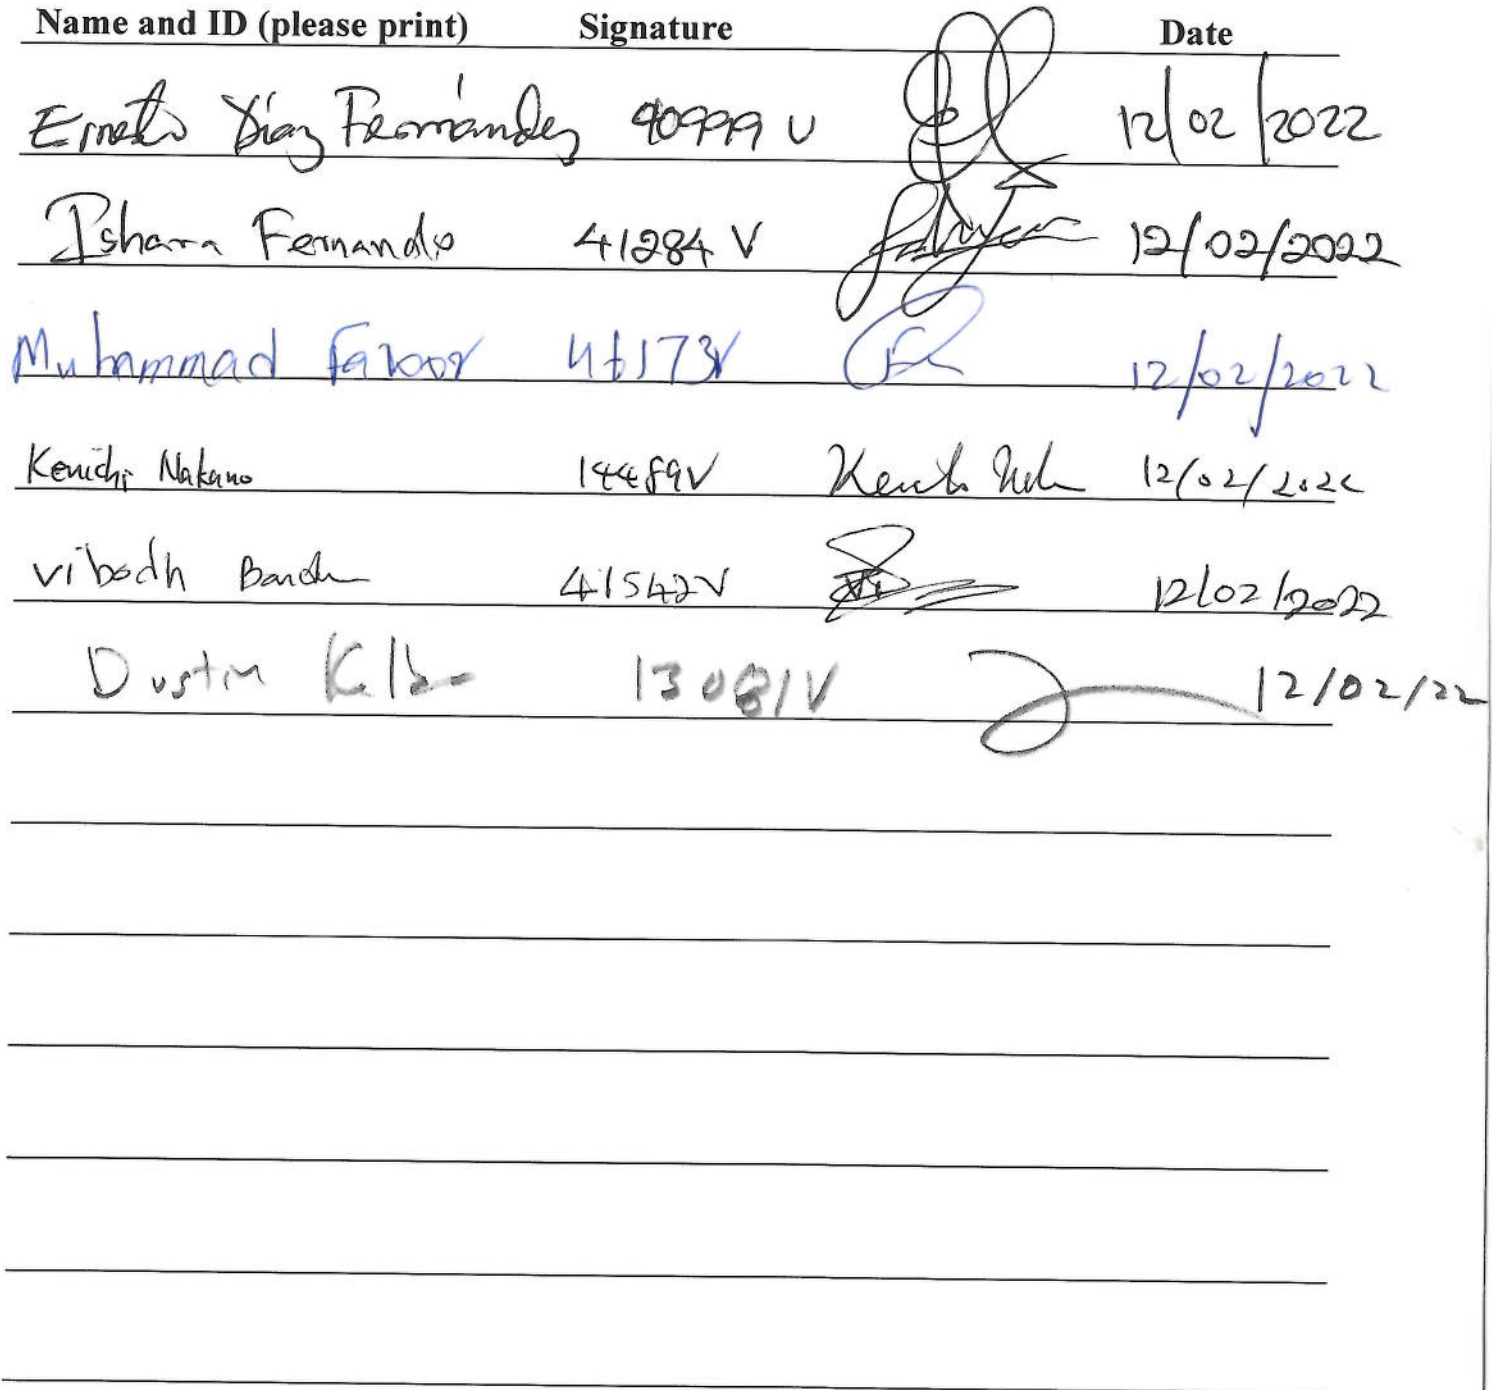 Name and ID (please print) Signature Date
Ernesto Díaz Fernández 90999 V 12/02/2022
Ishara Fernando 41284 V 12/02/2022
Muhammad 12/02/2022
Kenichi Nakano 14489V 12/02/2022
Vibodh 41542V 12/02/2022
Dustin 13081V 12/02/22